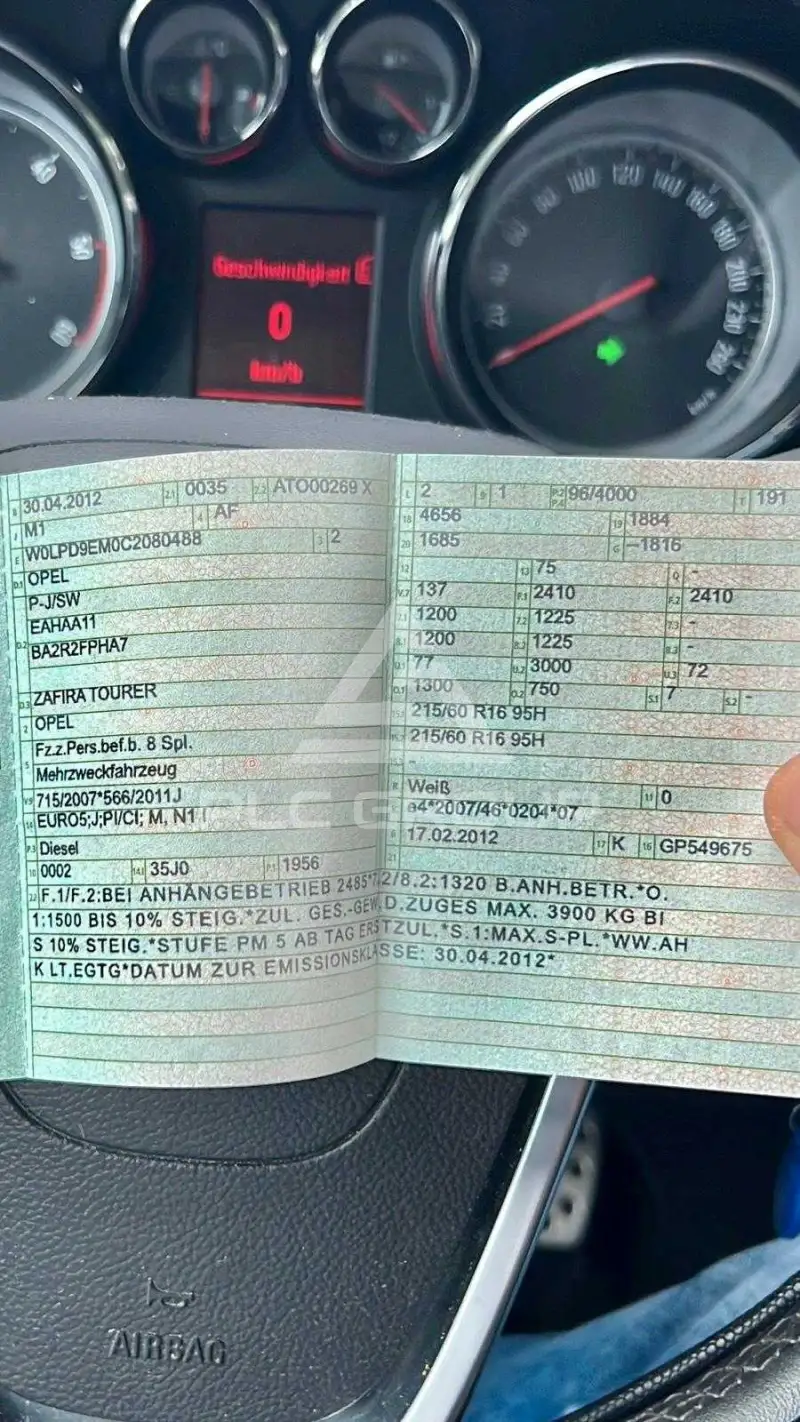 40
50
60
20
40
60
80
100
120
140
160
180
200
230
260
km/h
Geschwindigkeit
0
km/h
B 30.04.2012 2.1 0035 2.2 ATO00269 X
J M1 4 AF
E W0LPD9EM0C2080488 3 2
D.1 OPEL
P-J/SW
D.2 EAHAA11
BA2R2FPHA7
D.3 ZAFIRA TOURER
2 OPEL
5 Fz.z.Pers.bef.b. 8 Spl.
Mehrzweckfahrzeug
V.9 715/2007*566/2011J
14 EURO5;J;PI/CI; M, N1 I
P.3 Diesel
10 0002 14.1 35J0 P.1 1956
L 2 9 1 P.2 P.4 96/4000 T 191
18 4656 19 1884
20 1685 G –1816
12 13 75 Q -
V.7 137 F.1 2410 F.2 2410
7.1 1200 7.2 1225 7.3 -
8.1 1200 8.2 1225 8.3 -
U.1 77 U.2 3000 U.3 72
O.1 1300 O.2 750 S.1 7 S.2 -
15.1 215/60 R16 95H
15.2 215/60 R16 95H
15.3 -
R Weiß 11 0
K e4*2007/46*0204*07
6 17.02.2012 17 K 16 GP549675
21
22 F.1/F.2:BEI ANHÄNGEBETRIEB 2485*7.2/8.2:1320 B.ANH.BETR.*O.
1:1500 BIS 10% STEIG.*ZUL. GES.-GEW.D.ZUGES MAX. 3900 KG BI
S 10% STEIG.*STUFE PM 5 AB TAG ERSTZUL.*S.1:MAX.S-PL.*WW.AH
K LT.EGTG*DATUM ZUR EMISSIONSKLASSE: 30.04.2012*
AIRBAG